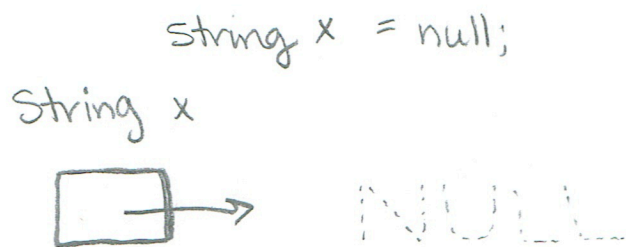 String x = null;
String x
NULL